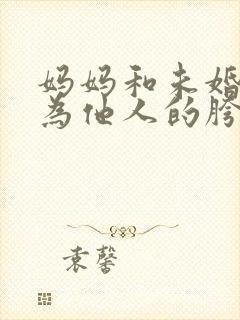 妈妈和未婚
為他人的胯
袁馨